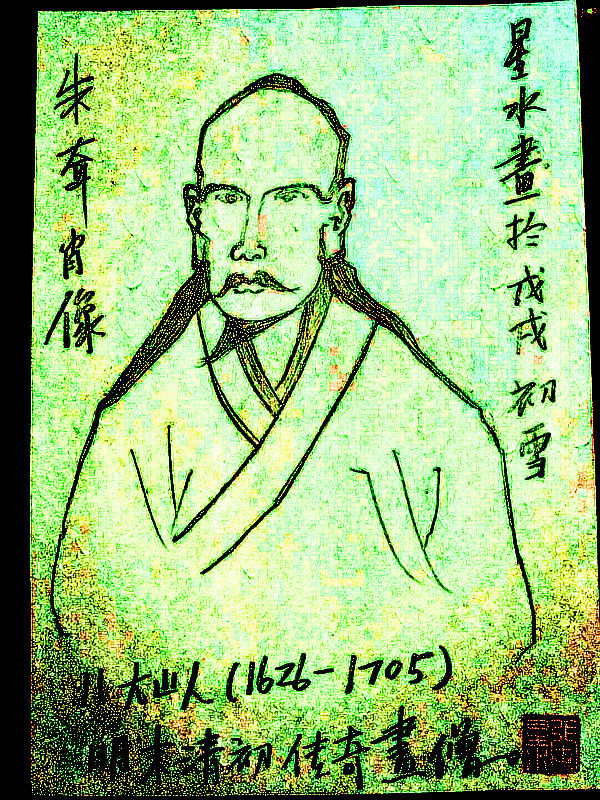 星水畫於戊戌初雪
朱耷肖像
八大山人(1626-1705)
明末清初传奇畫僧。